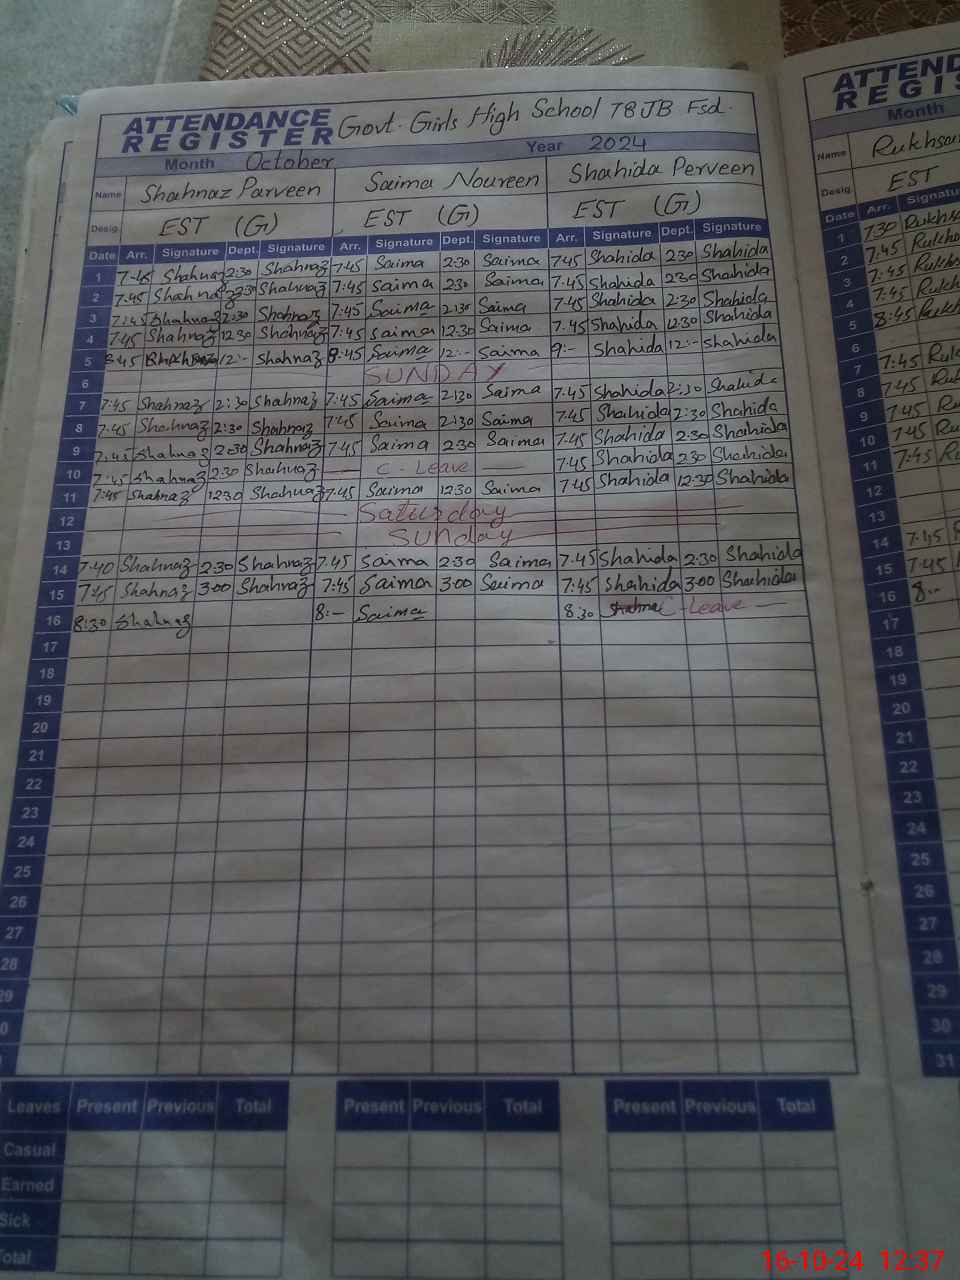 ATTENDANCE REGISTER Govt. Girls High School 78 JB Fsd.
Month October Year 2024
Name Shahnaz Parveen Saima Noureen Shahida Perveen
Desig. EST (G) EST (G) EST (G)
Date Arr. Signature Dept. Signature Arr. Signature Dept. Signature Arr. Signature Dept. Signature
1 7:45 Shahnaz 2:30 Shahnaz 7:45 Saima 2:30 Saima 7:45 Shahida 2:30 Shahida
2 7:45 Shahnaz 2:30 Shahnaz 7:45 Saima 2:30 Saima 7:45 Shahida 2:30 Shahida
3 7:45 Shahnaz 2:30 Shahnaz 7:45 Saima 2:30 Saima 7:45 Shahida 2:30 Shahida
4 7:45 Shahnaz 12:30 Shahnaz 7:45 Saima 12:30 Saima 7:45 Shahida 12:30 Shahida
5 8:45 Shahnaz 12:- Shahnaz 8:45 Saima 12:- Saima 9:- Shahida 12:- Shahida
6 SUNDAY
7 7:45 Shahnaz 2:30 Shahnaz 7:45 Saima 2:30 Saima 7:45 Shahida 2:30 Shahida
8 7:45 Shahnaz 2:30 Shahnaz 7:45 Saima 2:30 Saima 7:45 Shahida 2:30 Shahida
9 7:45 Shahnaz 2:30 Shahnaz 7:45 Saima 2:30 Saima 7:45 Shahida 2:30 Shahida
10 7:45 Shahnaz 2:30 Shahnaz — C-Leave — 7:45 Shahida 2:30 Shahida
11 7:45 Shahnaz 12:30 Shahnaz 7:45 Saima 12:30 Saima 7:45 Shahida 12:30 Shahida
12 Saturday
13 Sunday
14 7:40 Shahnaz 2:30 Shahnaz 7:45 Saima 2:30 Saima 7:45 Shahida 2:30 Shahida
15 7:45 Shahnaz 3:00 Shahnaz 7:45 Saima 3:00 Saima 7:45 Shahida 3:00 Shahida
16 8:30 Shahnaz 8:- Saima 8:30 C-Leave —
17
18
19
20
21
22
23
24
25
26
27
28
29
0
Leaves Present Previous Total Present Previous Total Present Previous Total
Casual
Earned
Sick
Total
ATTEND
REGIS
Month
Name Rukhsa
Desig. EST
Date Arr. Signatu
1 7:30 Rukhsa
2 7:45 Rukhs
3 7:45 Rukh
4 7:45 Rukh
5 8:45 Rukh
6
7 7:45 Ruk
8 7:45 Ruk
9 7:45 Ru
10 7:45 Ru
11 7:45 Ru
12
13
14 7:45
15 7:45
16 8:-
17
18
19
20
21
22
23
24
25
26
27
28
29
30
31
16-10-24 12:37